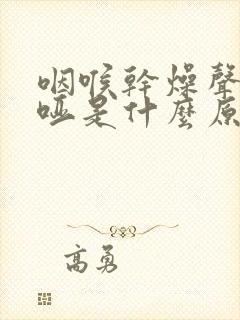 咽喉幹燥聲
啞是什麼原
高勇